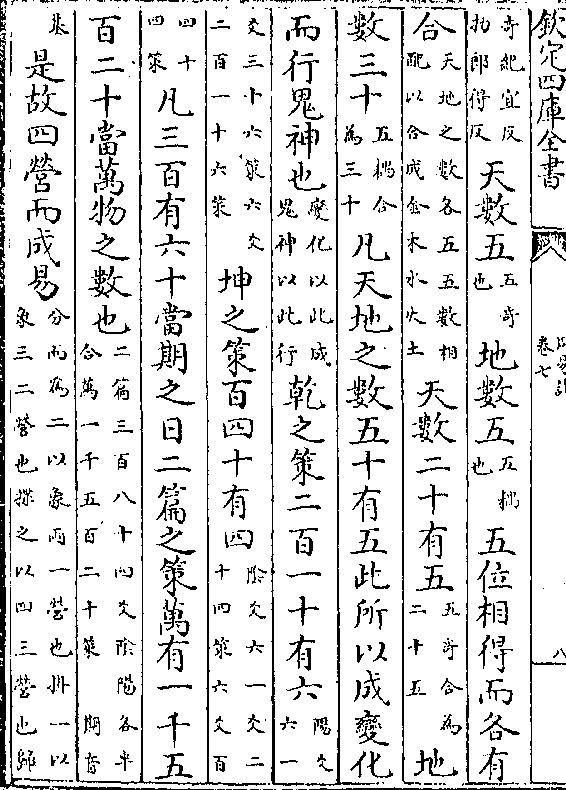 欽定四庫全書
卷七
八
奇紀宜反
扐郎得反
天數五
五奇
也
地數五
五耦
也
五位相得而各有
合
天地之數各五五數相
配以合成金木水火土
天數二十有五
五奇合為
二十五
地
數三十
五耦合
為三十
凡天地之數五十有五此所以成變化
而行鬼神也
變化以此成
鬼神以此行
乾之策二百一十有六
陽爻
六一
爻三十六策六爻
二百一十六策
坤之策百四十有四
陰爻六一爻二
十四策六爻百
四十
四策
凡三百有六十當期之日二篇之策萬有一千五
百二十當萬物之數也
二篇三百八十四爻陰陽各半
合萬一千五百二十策 期音
朞
是故四營而成易
分而為二以象兩一營也掛一以
象三二營也揲之以四三營也歸